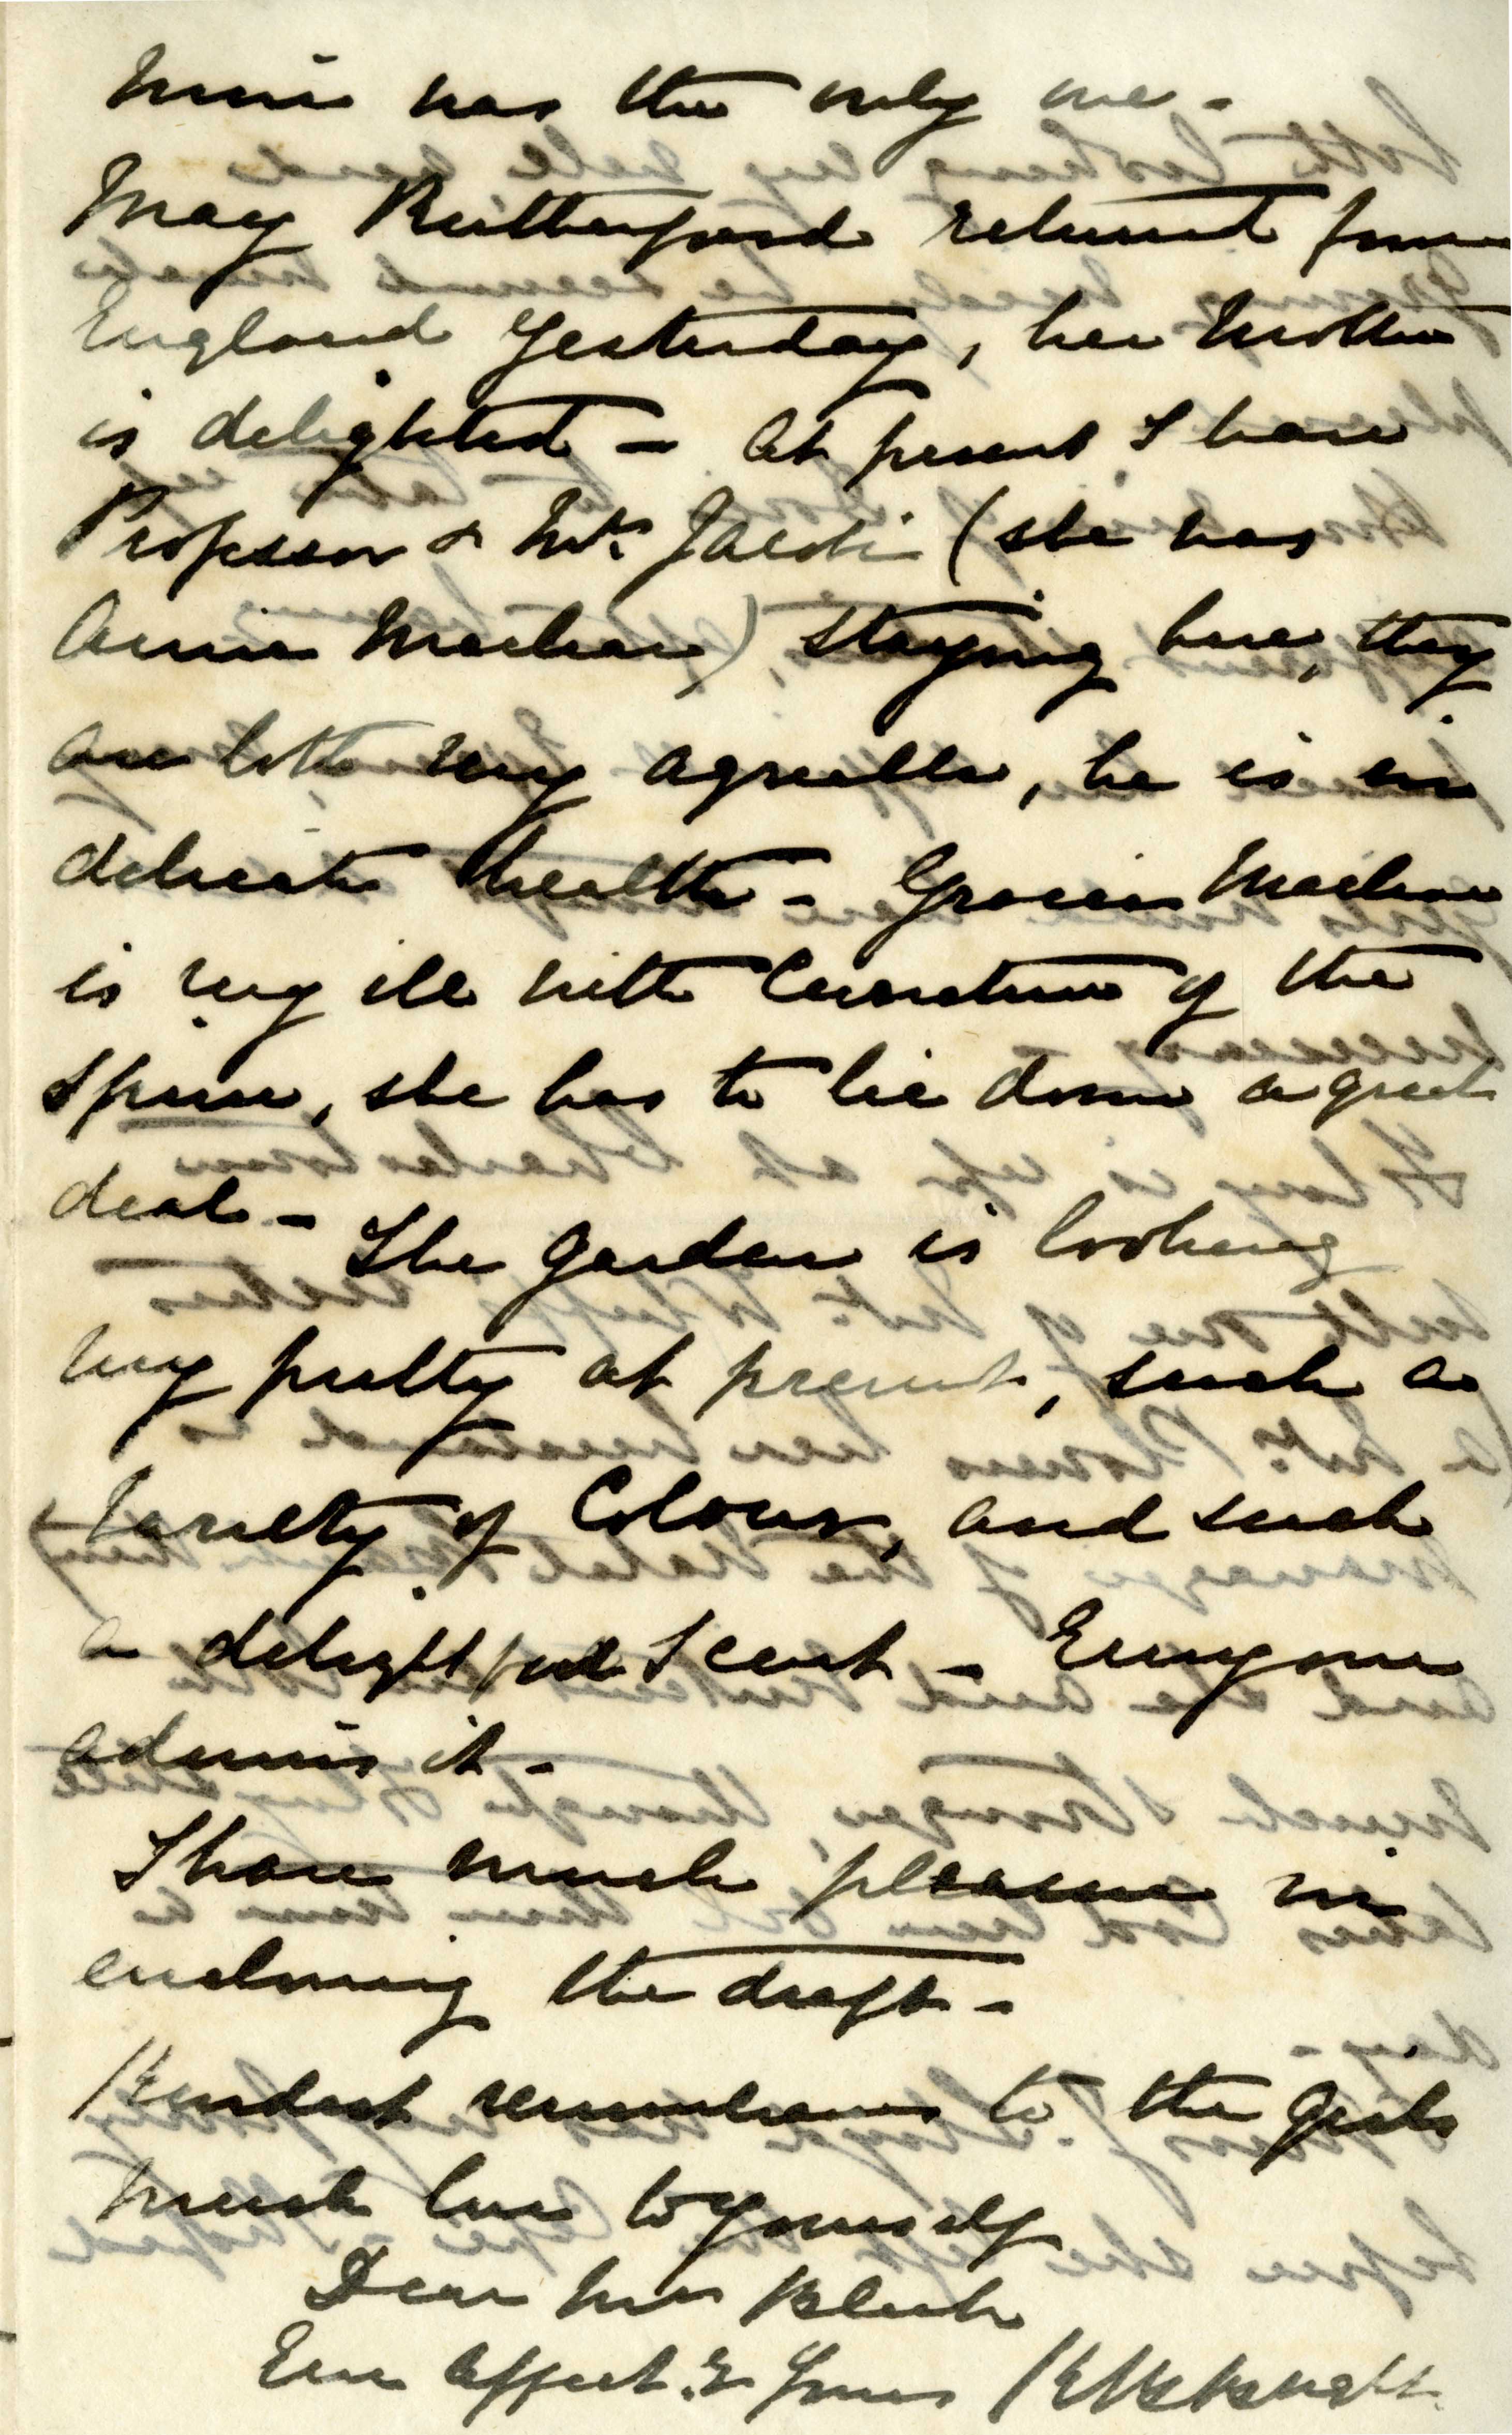 mine was the only one -
May Rutherfoord returned from
England yesterday, her Mother
is delighted - At present I have
Professor & Mrs. Jacobi (she was
Annie Maclear) staying here, they
are both very agreeable, he is in
delicate health - Gracie Maclear
is very ill with Curvature of the
Spine, she has to lie down a great
deal - The garden is looking
very pretty at present, such a
Variety of Colour, and such
a delightful Scent - Everyone
admires it -
I have much pleasure in
enclosing the draft -
Kindest remembrances to the girls
much love to yourself
Dear Mrs Bleek
Ever affect.ly Yours